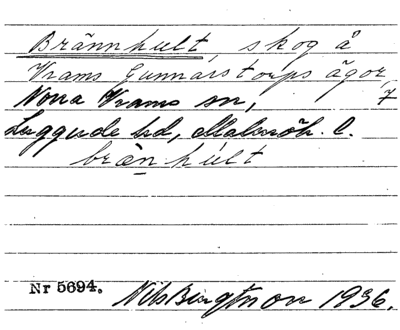 Brännhult, skog å
Vrams Gunnarstorps ägor,
Norra Vrams sn, 7
Luggude hd, Malmöh. l.
brä̲n húlt
Nr 5694. Nils Bengtsson 1936.